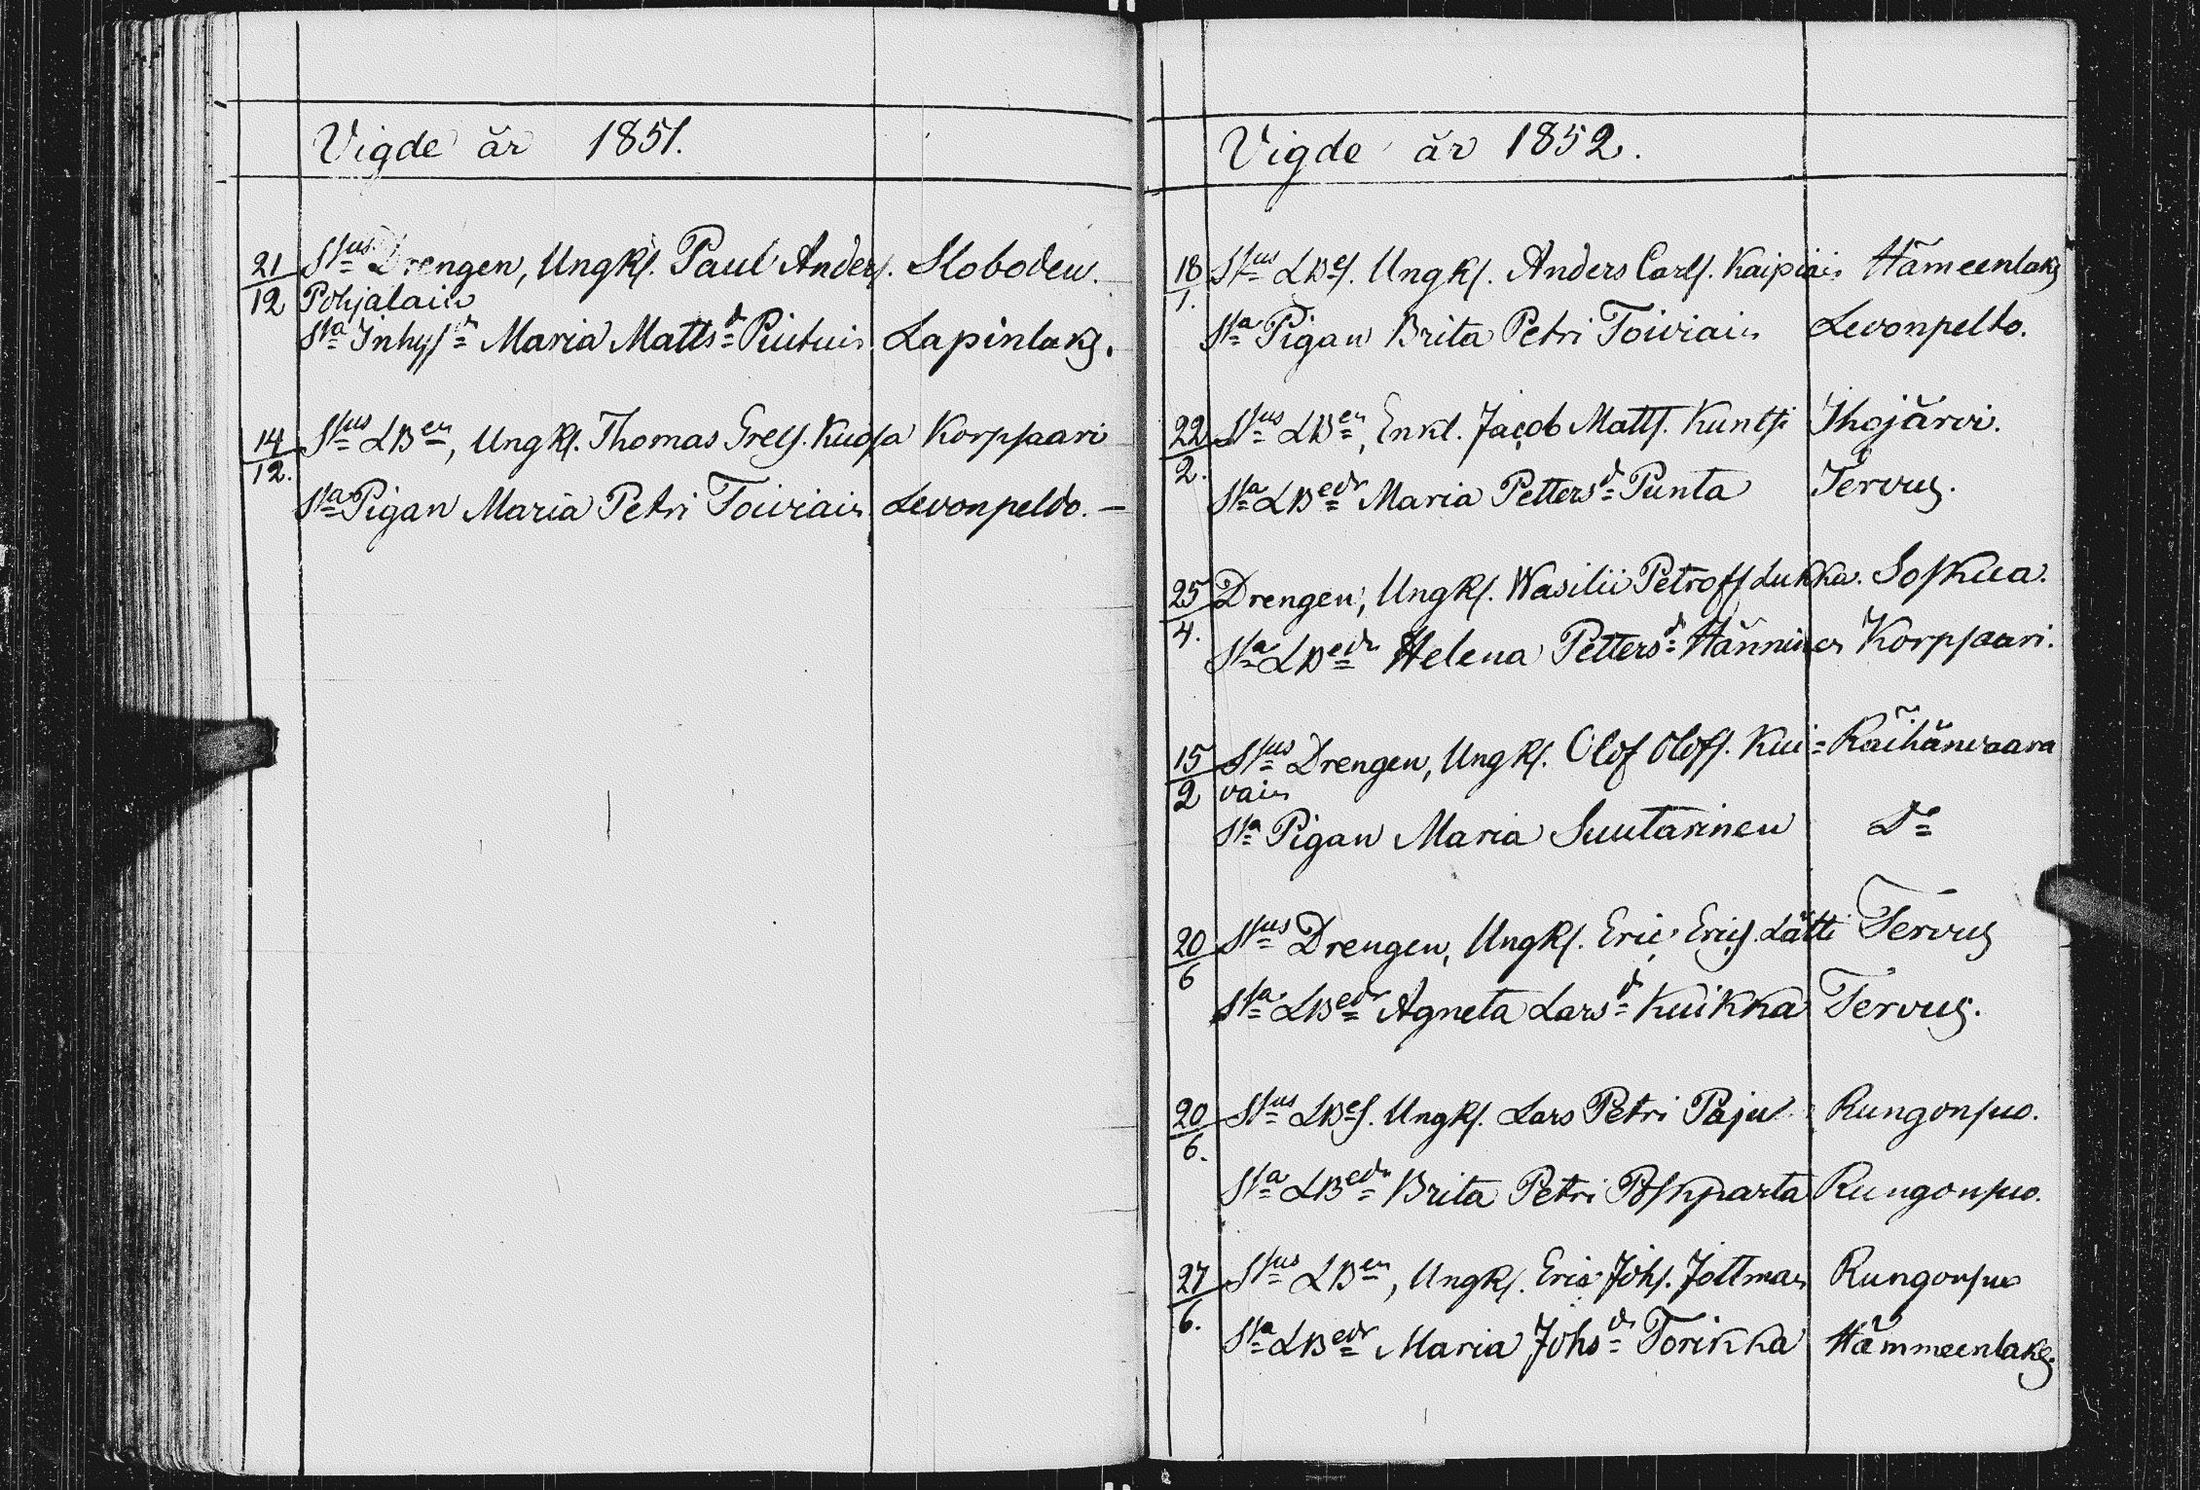 Vigde år 1851.
21/12 Sjus Drengen, Ungkf. Paul Andersf. Slobodew.
Pohjalain
Sta Inhysn Maria Mattsd Piutuin Lapinlaks.
14/12. Sjus LBen, Ungkf. Thomas Grelf. Kuosa Korpsaari
Sta Pigan Maria Petri Toiviain Levonpeldo. —
Vigde år 1852.
18/1. Sjus LBef. Ungkf. Anders Carlf. Kaipiain Hämeenlaks
Sta Pigan Brita Petri Toiviain Levonpelto.
22/2. Sjus LBen, Enkl. Jacob Mattf. Kuntsi Ihojärvi.
Sta LBedr Maria Pettersd Punta Tervus.
25/4. Drengen, Ungkf. Wasilii Petroff Lukka. Soskua.
Sta LBedr Helena Pettersd Hänninen Korpsaari.
15/2 Sjus Drengen, Ungkf. Olof Oloff. Kui= Räihänvaara
vain
Sta Pigan Maria Suutarinen Do
20/6 Sjus Drengen, Ungkf. Eric Ericf. Lätti Tervus
Sta LBedr Agneta Larsd Kuikka Tervus.
20/6. Sjus LBef. Ungkf. Lars Petri Paju Rungonsuo.
Sta LBedr Brita Petri Poskiparta Rungonsuo.
27/6. Sjus LBen, Ungkf. Eric Johf. Jottman Rungonsuo
Sta LBedr Maria Johsd Torikka Hämmeenlaks.